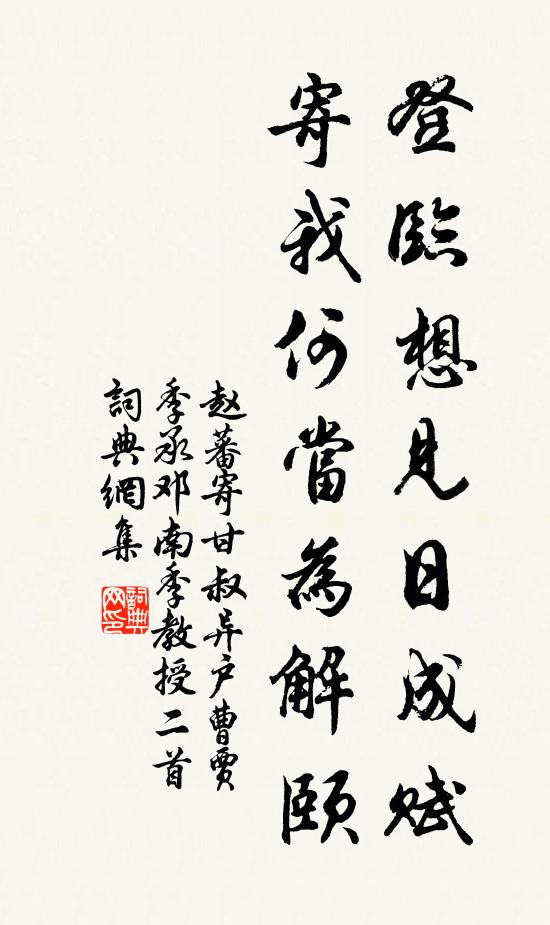 登臨想見日成賦
寄我何當為解頤
赵蕃寄甘叔异户曹贾
季承邓南季教授二首
詞典網集
詞典網印